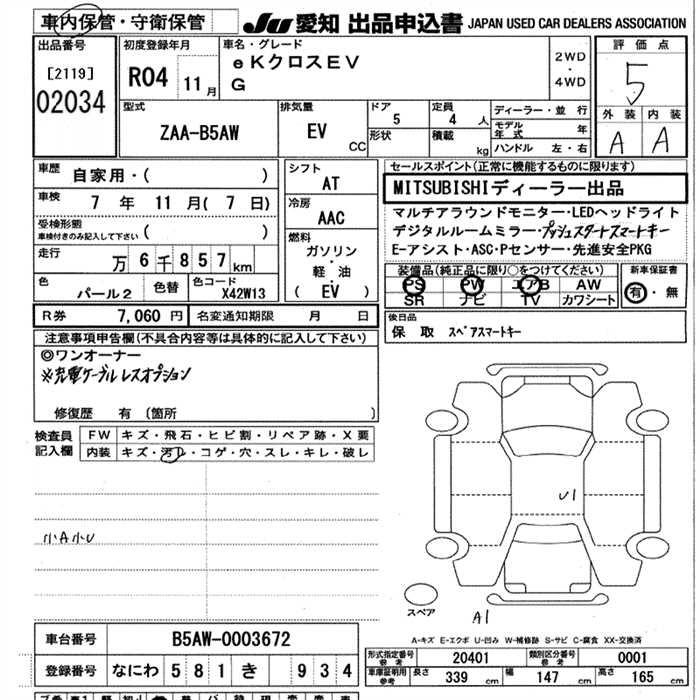 車内保管・守衛保管
JU 愛知 出品申込書 JAPAN USED CAR DEALERS ASSOCIATION
出品番号
[2119]
02034
初度登録年月
R04 11月
車名・グレード
eKクロスEV
G
2WD
・
4WD
評価点
5
外装 内装
A A
型式
ZAA-B5AW
排気量
EV
CC
ドア
5
形状
定員
4 人
積載
kg
ディーラー・並行
モデル年式 年
ハンドル 左・右
車歴
自家用・( )
車検
7 年 11 月( 7 日)
受検形態
車検付きのみ記入して下さい ( )
走行
万 6 千 8 5 7 km
色
パール2
色替
色コード
X42W13
シフト
AT
冷房
AAC
燃料
ガソリン
・
軽・油
( EV )
セールスポイント(正常に機能するものに限ります)
MITSUBISHIディーラー出品
マルチアラウンドモニター・LEDヘッドライト
デジタルルームミラー・プッシュスタートスマートキー
E-アシスト・ASC・Pセンサー・先進安全PKG
装備品(純正品に限り○をつけてください)
PS PW エアB AW
SR ナビ TV カワシート
新車保証書
有・無
R券 7,060 円
名変通知期限 月 日
後日品
保 取 スペアスマートキー
注意事項申告欄(不具合内容等は具体的に記入して下さい)
◎ワンオーナー
※充電ケーブルレスオプション
修復歴 有 (箇所 )
検査員
記入欄
FW キズ・飛石・ヒビ割・リペア跡・X要
内装 キズ・汚レ・コゲ・穴・スレ・キレ・破レ
小A小U
U1
A1
スペア
A-キズ E-エクボ U-凹み W-補修跡 S-サビ C-腐食 XX-交換済
車台番号 B5AW-0003672
登録番号 なにわ 5 8 1 き 9 3 4
形式指定番号
参考
20401
類別区分番号
参考
0001
車庫証明用
参考
長さ 339 cm 幅 147 cm 高さ 165 cm